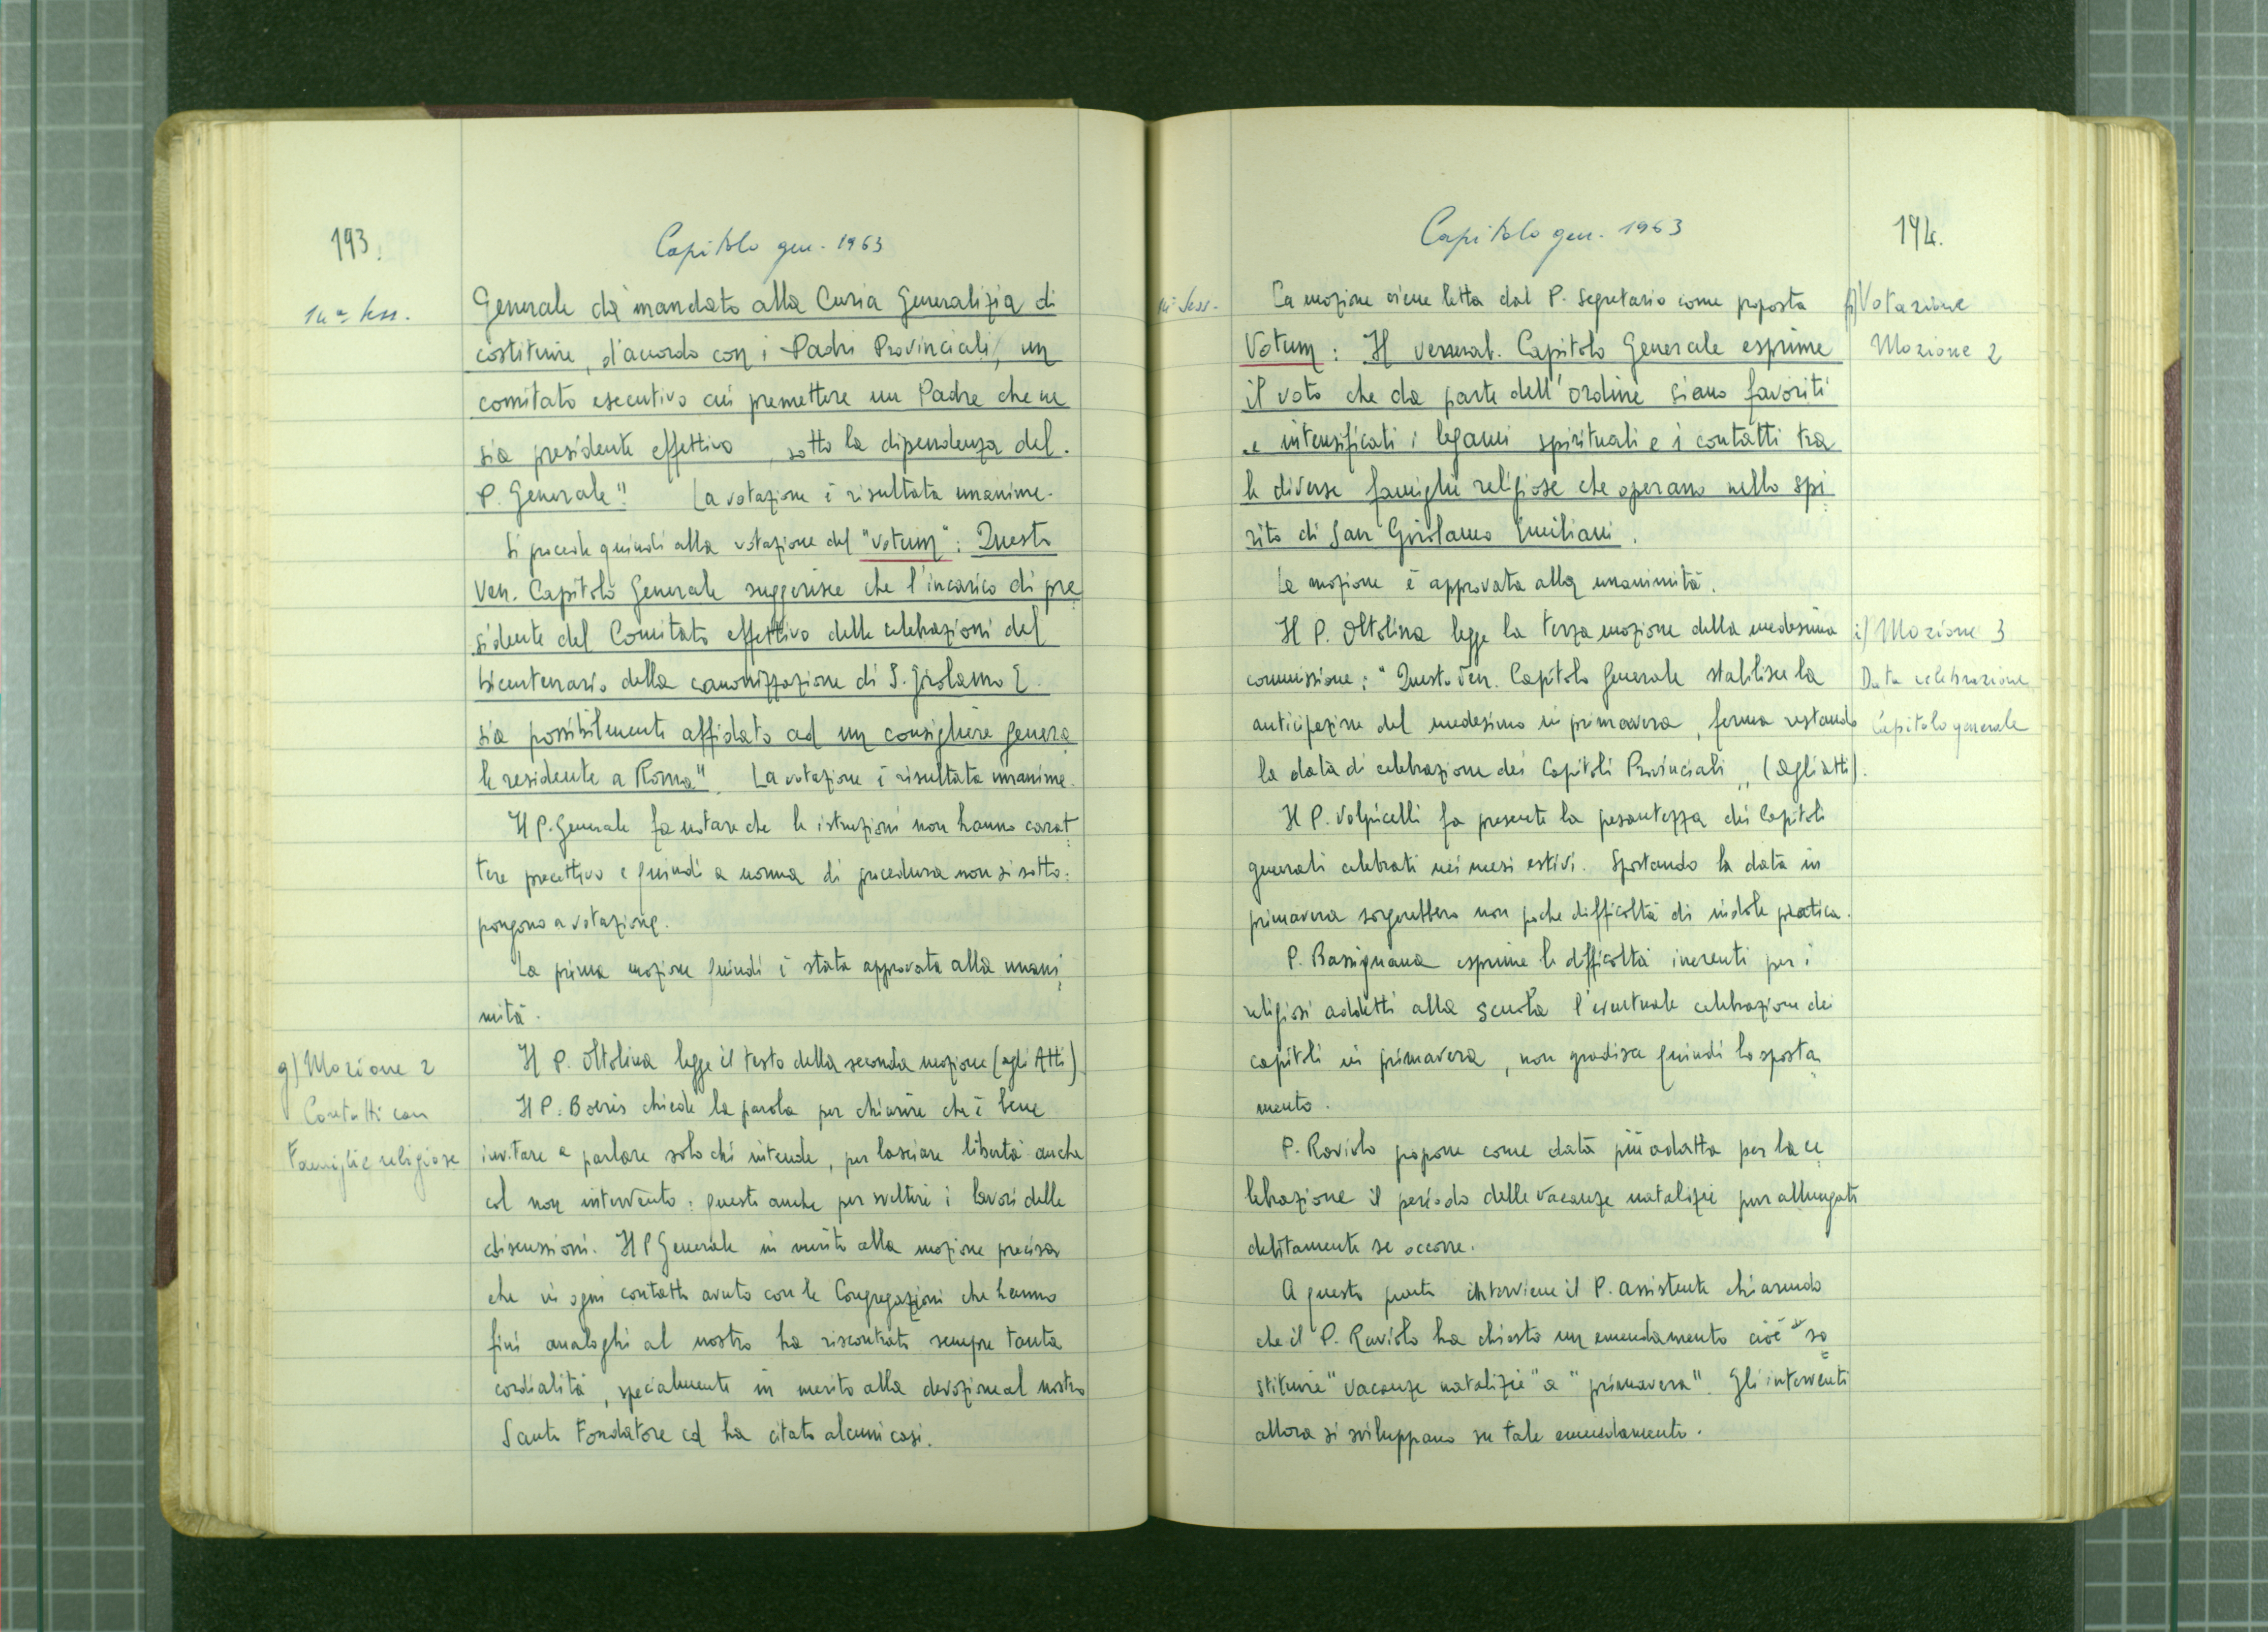 193.
Capitolo gen. 1963
14ª sess.
Generale dà mandato alla Curia Generalizia di
costituire, d'accordo con i Padri Provinciali, un
comitato esecutivo cui premettere un Padre che ne
sia presidente effettivo, sotto la dipendenza del
P. Generale". La votazione è risultata unanime.
Si procede quindi alla votazione del "votum": Questo
Ven. Capitolo Generale suggerisce che l'incarico di pre
sidente del Comitato effettivo delle celebrazioni del
bicentenario della canonizzazione di S. Girolamo E.
sia possibilmente affidato ad un consigliere genera
le residente a Roma". La votazione è risultata unanime.
Il P. Generale fa notare che le istruzioni non hanno carat
tere precettivo e quindi a norma di procedura non si sotto=
pongono a votazione.
La prima mozione quindi è stata approvata alla unani
mità.
g) Mozione 2
Contatti con
Famiglie religiose
Il P. Oltolina legge il testo della seconda mozione (agli Atti)
Il P. Boeris chiede la parola per chiarire che è bene
invitare a parlare solo chi intende, per lasciare libertà anche
col non intervento: questo anche per sveltire i lavori delle
discussioni. Il P Generale in merito alla mozione precisa
che in ogni contatto avuto con le Congregazioni che hanno
fini analoghi al nostro ha riscontrato sempre tanta
cordialità, specialmente in merito alla devozione al nostro
Santo Fondatore ed ha citato alcuni casi.
Capitolo gen. 1963
194.
sess.
La mozione viene letta dal P. Segretario come proposta
Votum: Il venerab. Capitolo Generale esprime
il voto che da parte dell'Ordine siano favoriti
e intensificati i legami spirituali e i contatti tra
le diverse famiglie religiose che operano nello spi
rito di San Girolamo Emiliani.
La mozione è approvata alla unanimità.
h) Votazione
Mozione 2
Il P. Oltolina legge la terza mozione della medesima
commissione: "Questo Ven. Capitolo Generale stabilisce la
anticipazione del medesimo in primavera, ferma restando
la data di celebrazione dei Capitoli Provinciali,, (agli atti).
i) Mozione 3
Data celebrazione
Capitolo generale
Il P. Volpicelli fa presente la pesantezza dei Capitoli
generali celebrati nei mesi estivi. Spostando la data in
primavera sorgerebbero non poche difficoltà di indole pratica.
P. Bassignana esprime le difficoltà inerenti per i
religiosi addetti alla scuola l'eventuale celebrazione dei
capitoli in primavera, non gradisce quindi lo sposta
mento.
P. Raviolo propone come data più adatta per la ce
lebrazione il periodo delle vacanze natalizie pur allungate
debitamente se occorre.
A questo punto interviene il P. Assistente chiarendo
che il P. Raviolo ha chiesto un emendamento cioè so
stituire "vacanze natalizie" a "primavera". Gli interventi
allora si sviluppano su tale emendamento.